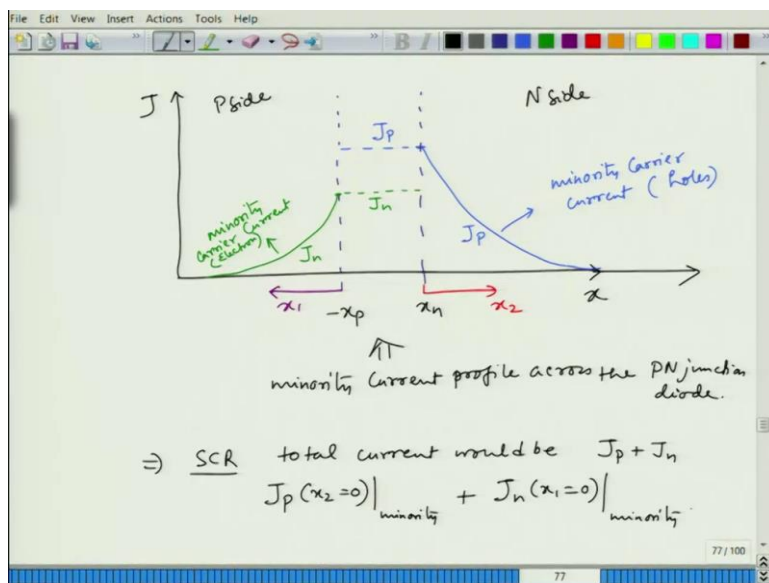 File Edit View Insert Actions Tools Help
B I
J P side N side
J_p
minority carrier
current (holes)
J_n
minority
carrier current
(Electron)
J_n
J_p
x_1 -x_p x_n x_2 x
minority current profile across the PN junction
diode.
⇒ SCR total current would be J_p + J_n
J_p(x_2=0)|minority + J_n(x_1=0)|minority
77/100
77